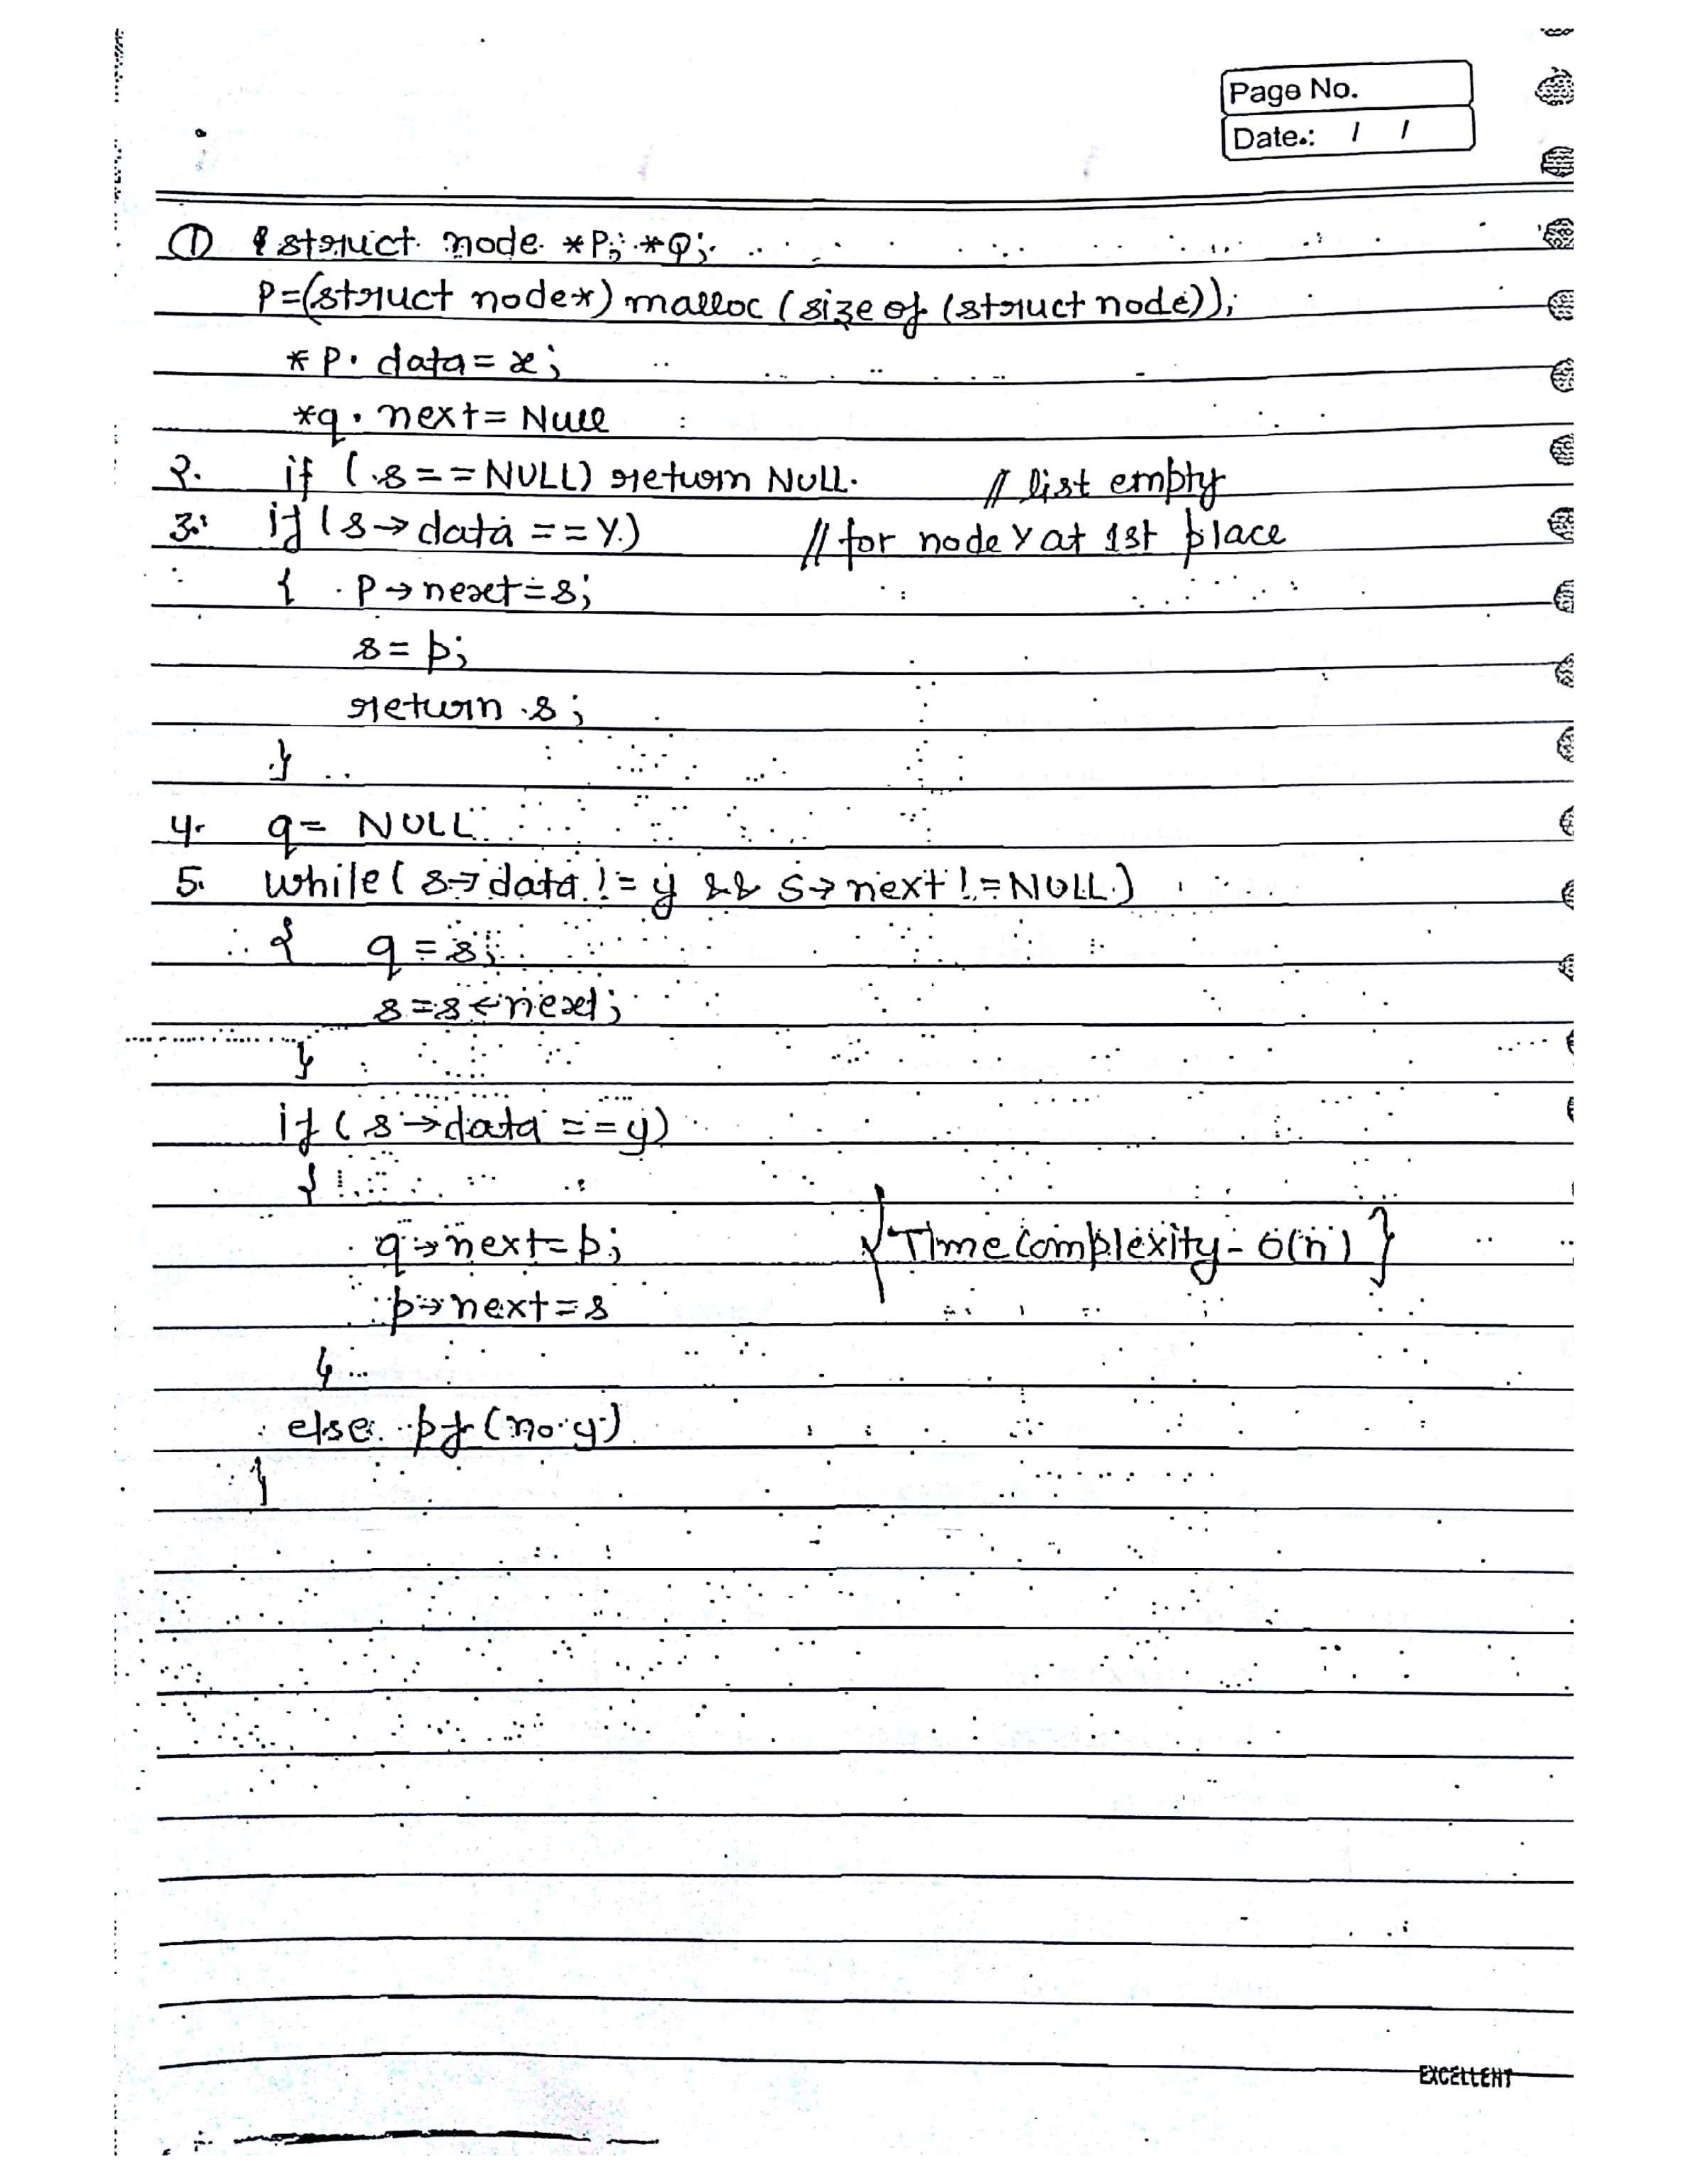 Page No.
Date.: / /
① struct node *P; *Q;
P=(struct node*) malloc (size of (struct node));
*P. data = x;
*q. next = Null
2. if (s == NULL) return NULL. // list empty
3. if (s → data == Y) // for node Y at 1st place
{ P → next = s;
s = p;
return s;
}
4. q = NULL
5. while( s → data != y && s → next != NULL)
{ q = s;
s = s ← next;
}
if ( s → data == y)
{
q → next = p; {Time Complexity - O(n) }
p → next = s
}
else pf (no y)
}
EXCELLENT